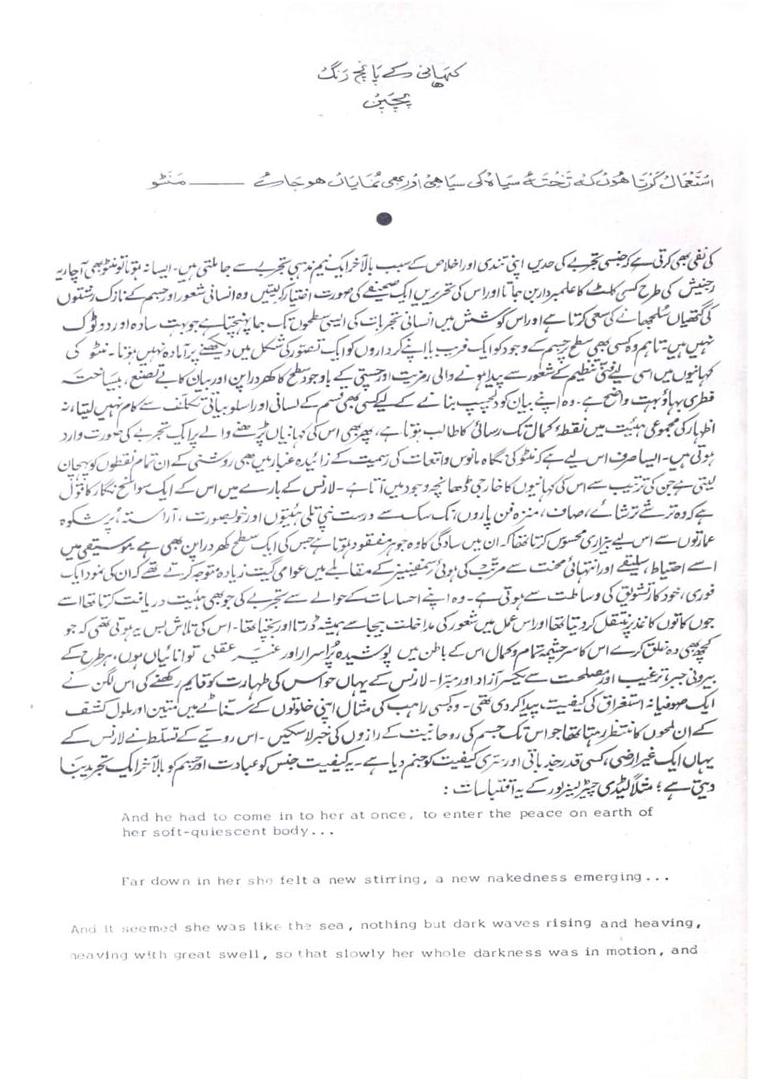 کہانی کے پانچ رنگ
پچپن
استعمال کرتا ہوں کہ تختۂ سیاہ کی سیاہی اور بھی نمایاں ہو جائے —— منٹو
کی نفی بھی کرتی ہے کہ جنسی تجربے کی حدیں اپنی تندی اور اخلاص کے سبب بالآخر ایک نیم مذہبی تجربے سے جا ملتی ہیں۔ ایسا نہ ہوتا تو منٹو بھی آچاریہ
رجنیش کی طرح کسی کلٹ کا علمبردار بن جاتا اور اس کی تحریریں ایک صحیفے کی صورت اختیار کر لیتیں وہ انسانی شعور اور جسم کے نازک رشتوں
کی گتھیاں سلجھانے کی سعی کرتا ہے اور اس کوشش میں انسانی تجربات کی ایسی سطحوں تک جا پہنچتا ہے جو بہت سادہ اور دو ٹوک
نہیں ہیں۔ تاہم وہ کسی بھی سطح پر جسم کے وجود کو ایک فریب یا اپنے کرداروں کو ایک تصور کی شکل میں دیکھنے پر آمادہ نہیں ہوتا۔ منٹو کی
کہانیوں میں اسی لیے فنی تنظیم کے شعور سے پیدا ہونے والی رمزیت اور چستی کے باوجود سطح کا کھردراپن اور بیان کا بے تصنع، بیساختہ
فطری بہاؤ بہت واضح ہے۔ وہ اپنے بیان کو دلچسپ بنانے کے لیے کسی بھی قسم کے لسانی اور اسلوبیاتی تکلف سے کام نہیں لیتا، نہ
اظہار کی مجموعی ہیئت میں نقطۂ کمال تک رسائی کا طالب ہوتا ہے، پھر بھی اس کی کہانیاں پڑھنے والے پر ایک تجربے کی صورت وارد
ہوتی ہیں۔ ایسا صرف اس لیے ہے کہ منٹو کی نگاہ مانوس واقعات کی رسمیت کے زائیدہ غبار میں بھی روشنی کے ان تمام نقطوں کو پہچان
لیتی ہے جن کی ترتیب سے اس کی کہانیوں کا خارجی ڈھانچہ وجود میں آتا ہے۔ لارنس کے بارے میں اس کے ایک سوانح نگار کا قول
ہے کہ وہ ترشے ترشائے، صاف، منزہ فن پاروں، نک سک سے درست نپی تلی ہیئتوں اور خوبصورت، آراستہ، پرشکوہ
عمارتوں سے اس لیے بیزاری محسوس کرتا تھا کہ ان میں سادگی کا وہ جوہر مفقود ہوتا ہے جس کی ایک سطح کھردراپن بھی ہے۔ موسیقی میں
اسے احتیاط، سلیقے اور انتہائی محنت سے مرتب کی ہوئی سمفنیز کے مقابلے میں عوامی گیت زیادہ متوجہ کرتے تھے کہ ان کی نمود ایک
فوری، خود کار تشویق کی وساطت سے ہوتی ہے۔ وہ اپنے احساسات کے حوالے سے تجربے کی جو بھی ہیئت دریافت کرتا تھا اسے
جوں کا توں کاغذ پر منتقل کر دیتا تھا اور اس عمل میں شعور کی مداخلت بیجا سے ہمیشہ ڈرتا اور بچتا تھا۔ اس کی تلاش بس یہ ہوتی تھی کہ جو
کچھ بھی وہ خلق کرے اس کا سرچشمہ تمام و کمال اس کے باطن میں پوشیدہ پراسرار اور غیر عقلی توانائیاں ہوں، ہر طرح کے
بیرونی جبر، ترغیب اور مصلحت سے یکسر آزاد اور مبرا۔ لارنس کے یہاں حواس کی طہارت کو قائم رکھنے کی اس لگن نے
ایک صوفیانہ استغراق کی کیفیت پیدا کر دی تھی۔ وہ کسی راہب کی مثال اپنی خلوتوں کے سناٹے میں متین اور ملول کشف
کے ان لمحوں کا منتظر رہتا تھا جو اس تک جسم کی روحانیت کے رازوں کی خبر لا سکیں۔ اس رویے کے تسلط نے لارنس کے
یہاں ایک غیر ارضی، کسی قدر جذباتی اور سری کیفیت کو جنم دیا ہے۔ یہ کیفیت جنس کو عبادت اور جسم کو بالآخر ایک تجرید بنا
دیتی ہے؛ مثلاً لیڈی چیٹرلیز لور کے یہ اقتباسات:
And he had to come in to her at once, to enter the peace on earth of
her soft-quiescent body...
Far down in her she felt a new stirring, a new nakedness emerging...
And it seemed she was like the sea, nothing but dark waves rising and heaving,
heaving with great swell, so that slowly her whole darkness was in motion, and